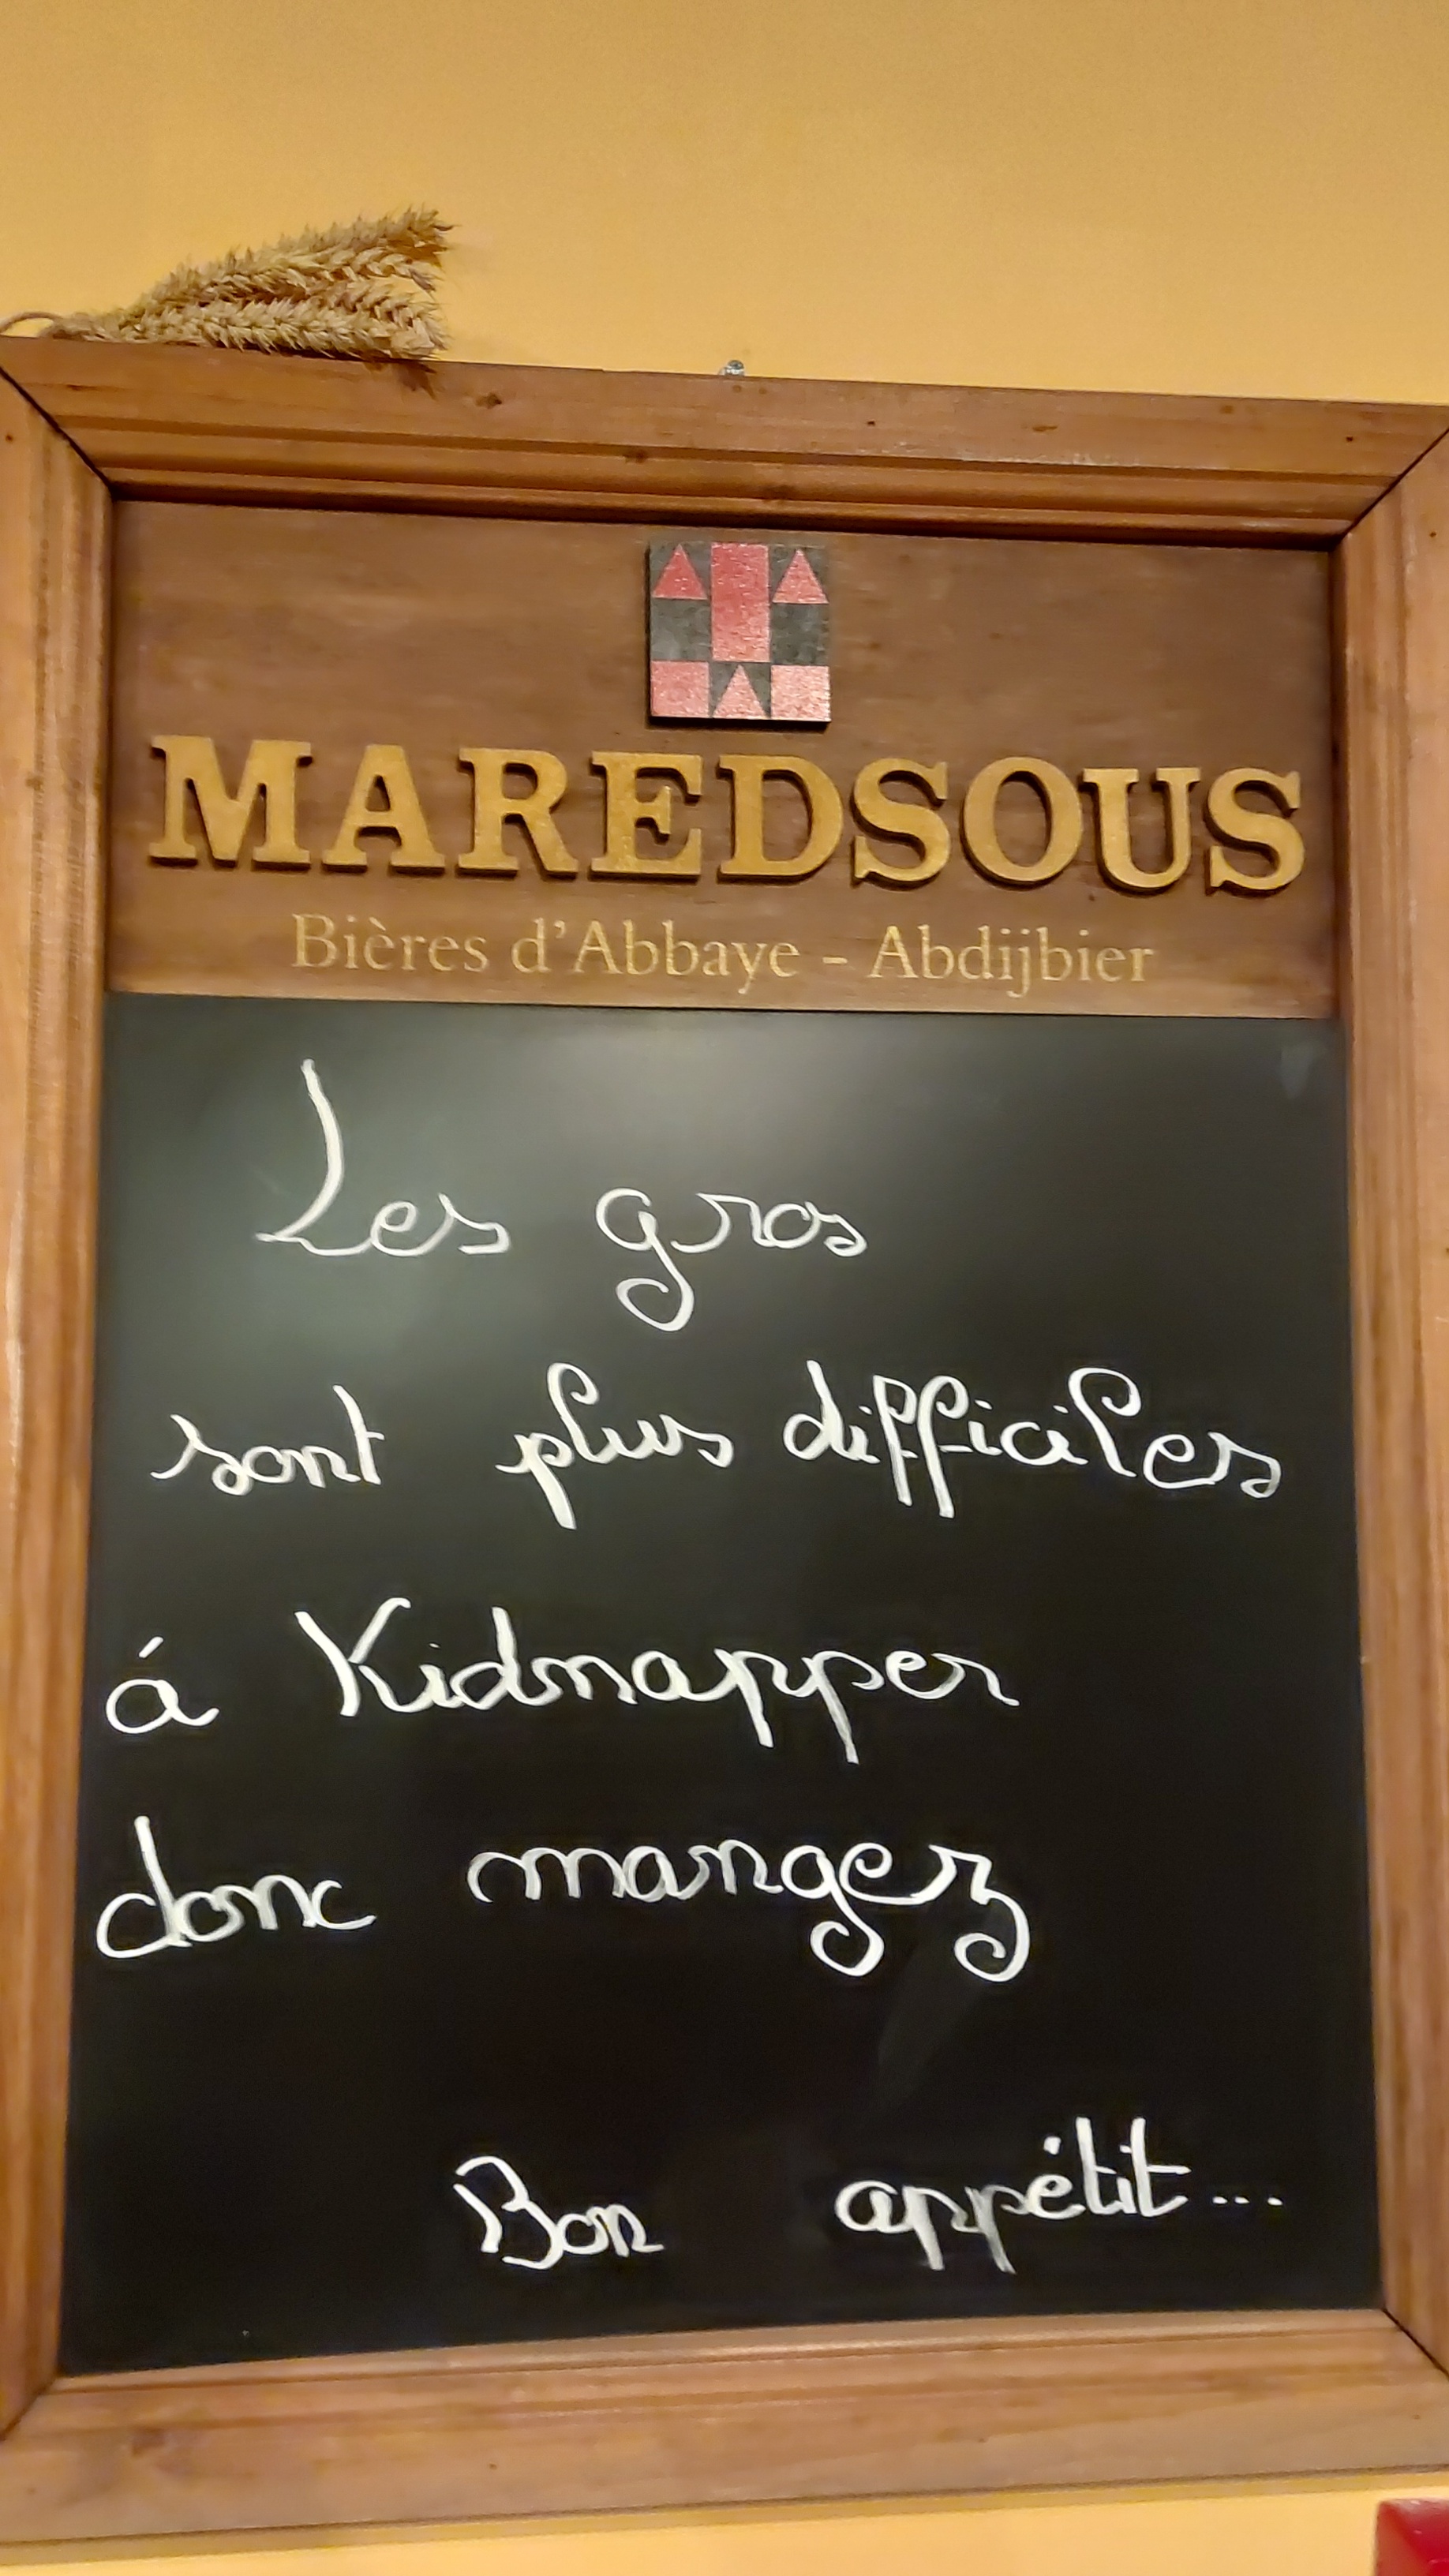 MAREDSOUS
Bières d'Abbaye - Abdijbier
Les gros
sont plus difficiles
á Kidnapper
donc mangez
Bon appétit...